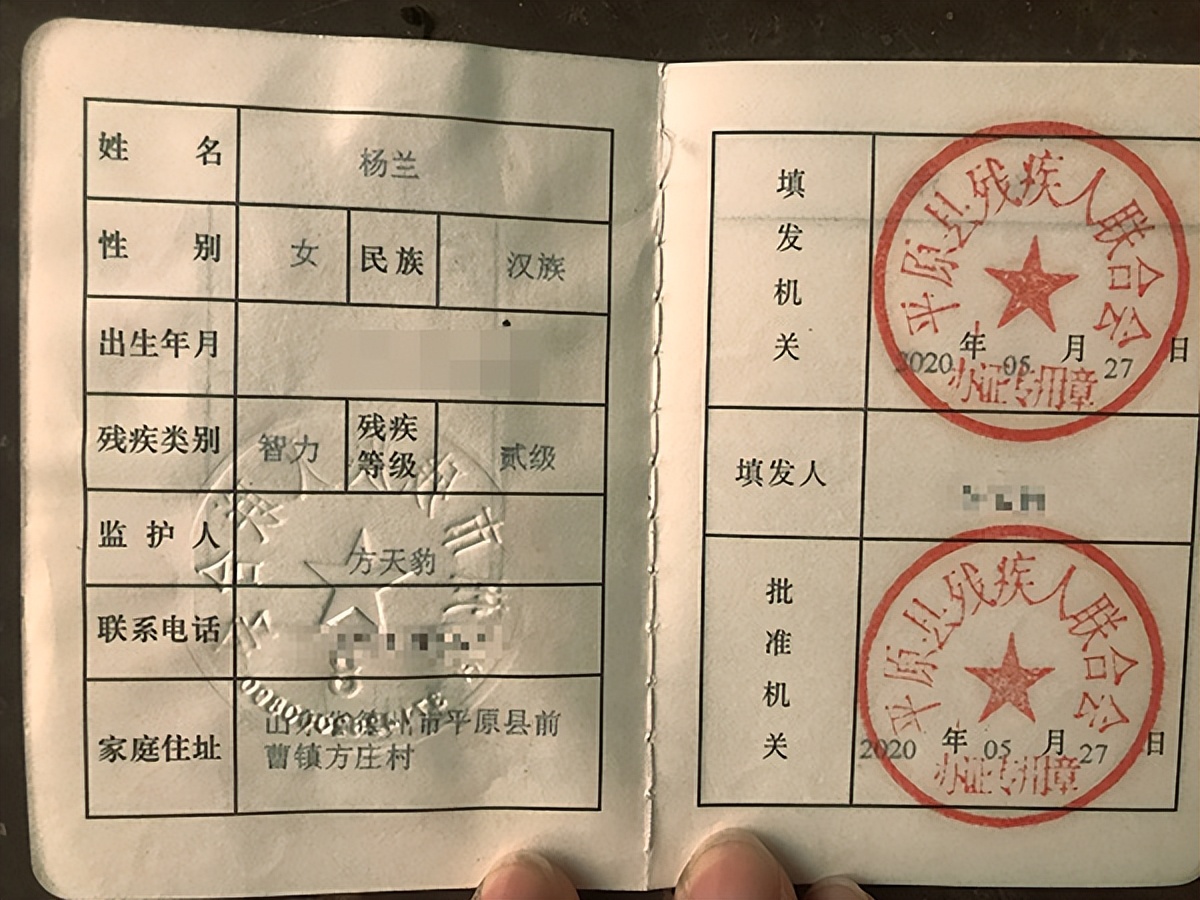 姓名 杨兰
性别 女 民族 汉族
出生年月
残疾类别 智力 残疾等级 贰级
监护人 方天豹
联系电话
家庭住址 山东省德州市平原县前
曹镇方庄村
填发机关
平原县残疾人联合会
2020年05月27日
办证专用章
填发人
批准机关
平原县残疾人联合会
2020年05月27日
办证专用章